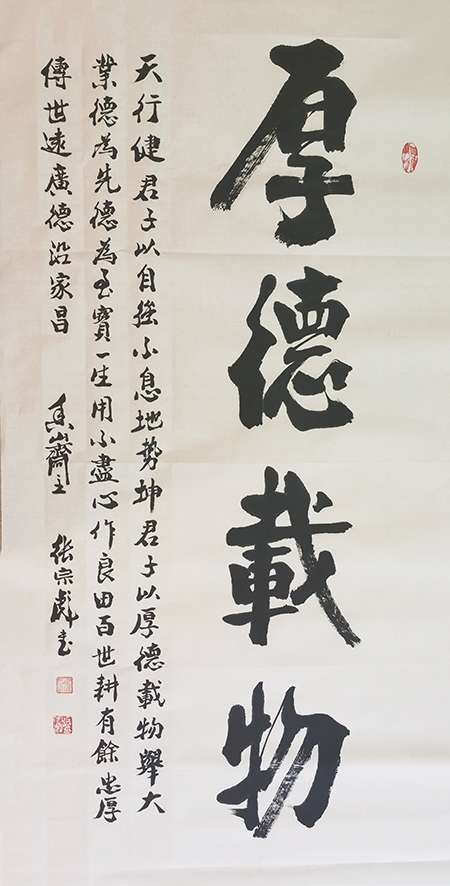 厚德載物
天行健君子以自强不息地勢坤君子以厚德載物舉大
業德為先德為至寶一生用不盡心作良田百世耕有餘忠厚
傳世遠廣德沿家昌
齋主 张宗彪书